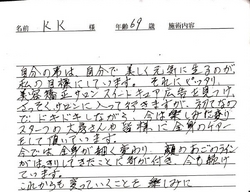 名前 KK 様 年齢 69 歳 施術内容
自分の夢は、自分で美しく元気に生きるが
私の目標にしています。それにピッタリ
美容矯正サロン スイートキュア 広告を見つけ
さっそくサロンに入って行きますが、初めてなので
ドキドキしながら、今は楽しみに通り
スタッフの大房さんや皆様に全身のケアー
をして頂いています。
今では全身が細く変わり、顔のあごのライン
がはっきりしてきたことに気が付き、今も続けて
います。
これからも変っていくことを楽しみに